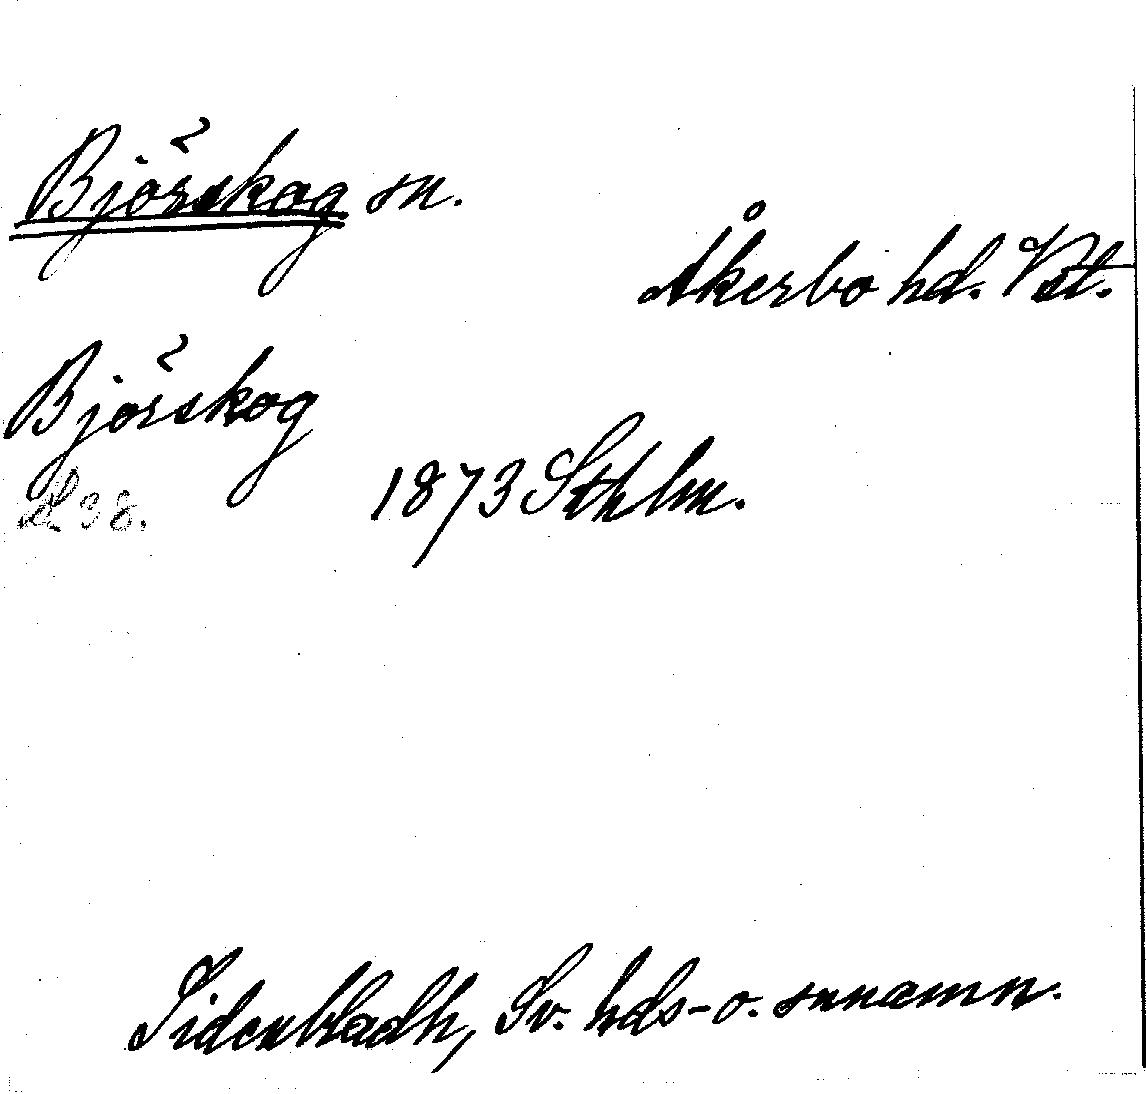 Björskog sn.
Åkerbo hd. Vstl.
Björskog
1873 Sthlm.
38.
Sidenbladh, Sv. hds- o. snnamn.